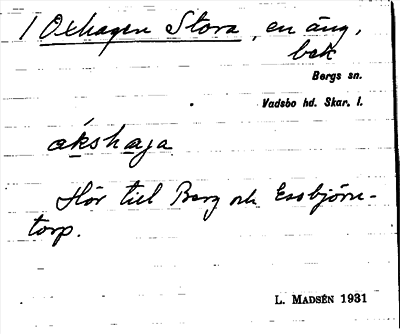 1 Oxhagen Stora, en äng,
bek
Bergs sn.
Vadsbo hd. Skar. l.
åkshaja
Hör till Berg och Essbjörn-
torp.
L. MADSÉN 1931